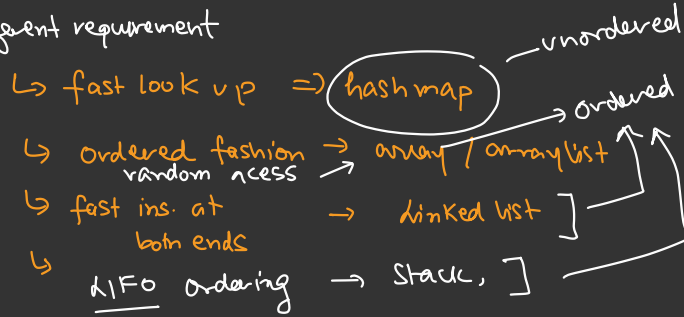 requirement
↳ fast look up => hashmap
unordered
ordered
↳ ordered fashion → array / arraylist
random acess
↳ fast ins. at both ends → Linked list ]
↳ LIFO ordering → Stack, ]